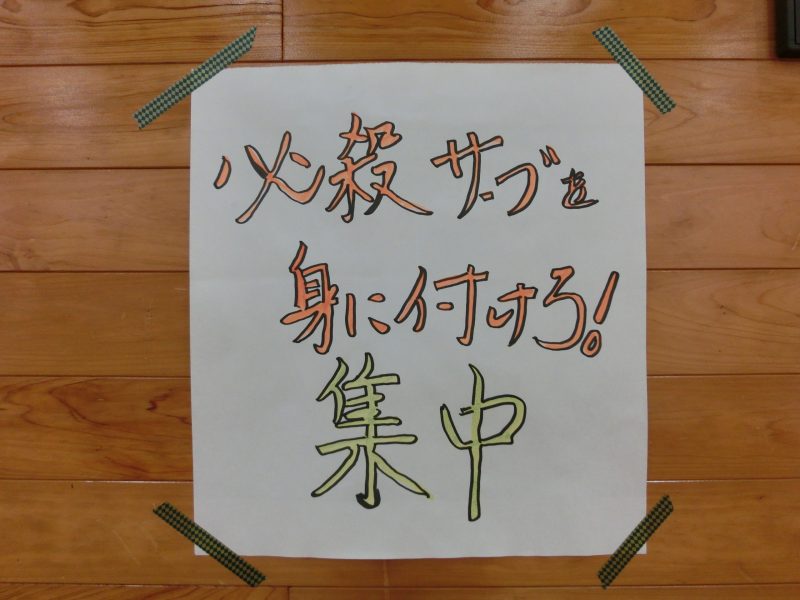 必殺サーブを
身に付けろ!
集中